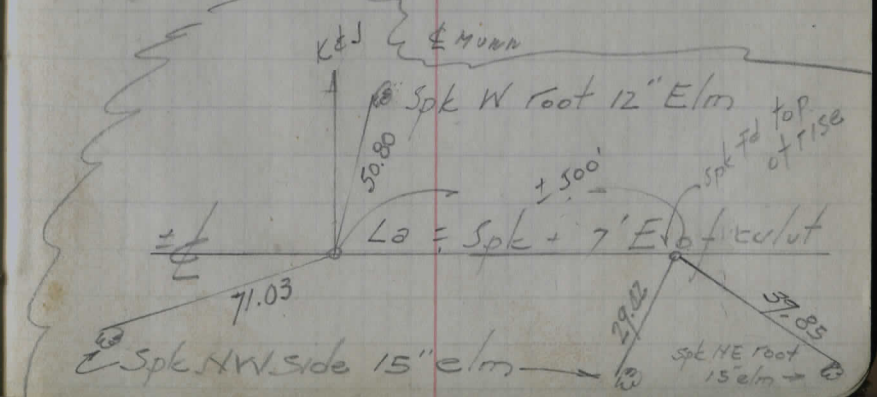 ℄ Munn
Spk W root 12" Elm
50.80
± 500'
Spk Fd top
of rise
± ℄
La = Spk - 7' E of culvt
71.03
29.02
37.85
Spk NW side 15" elm
Spk NE root
15" elm